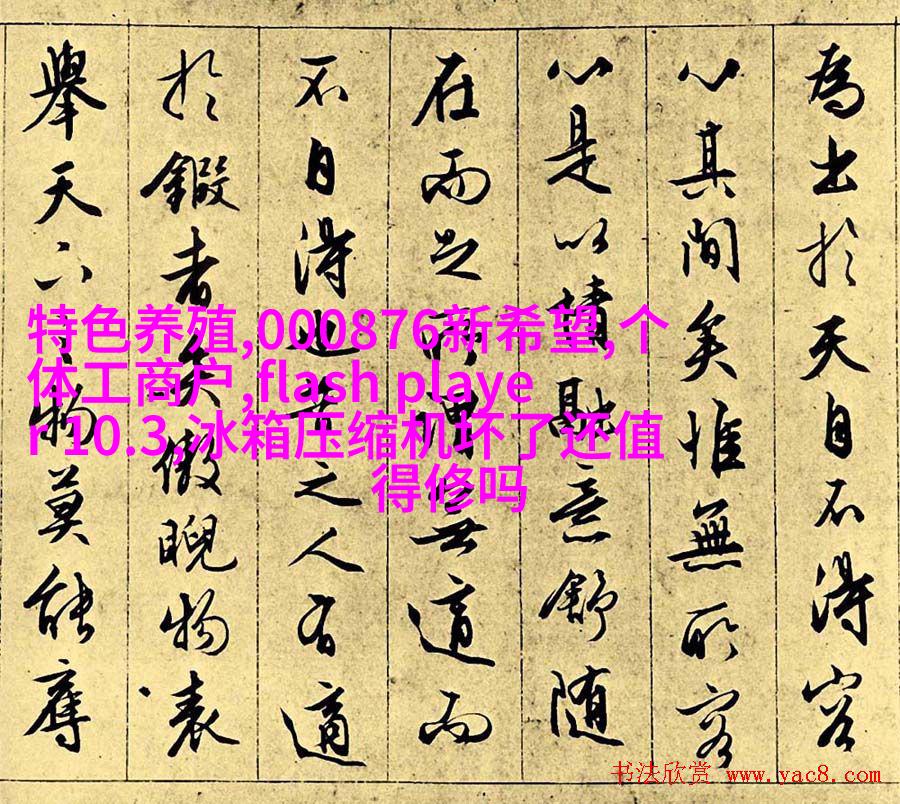 為出於天自不得容
心其間矣惟無所容
心是以情融意舒随
在而足所謂無適而
不自得也古之人有適
於者矣傲睨物表
舉天下之物莫能
特色养殖,000876新希望,个
体工商户,flash playe
r 10.3,冰箱压缩机坏了还值
得修吗
书法欣赏 www.yac8.com